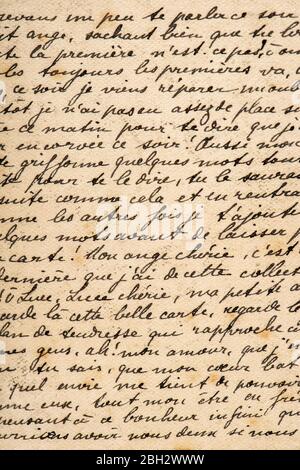 devons un peu te parler ce son
it ange, sachant bien que tu
te la première n'est ce pas, à
les toujours les premières va,
ce soir je viens réparer mon
tôt je n'ai pas eu assez de place
e ce matin pour te dire que je
r en corvée ce soir! Aussi mon
te griffonne quelques mots tou
ite pour te le dire, tu le sauras
suite comme cela et en rentra
mme les autres fois je t'ajoute
elques mots avant de laisser p
a carte. Mon ange chérie, c'est
dernière que j'ai de cette collect
Luce chérie, ma petite a
arde là cette belle carte, regarde l
lan de tendresse qui rapproche c
es gus, ah! mon amour, que j'
tu sais, que mon cœur bat
quel envie me tient de pouvoir
mme eux, tout mon être en fré
pensant à ce bonheur infini qu
urrions avoir nous deux si nous
alamy
Image ID: 2H2WWW
www.alamy.com